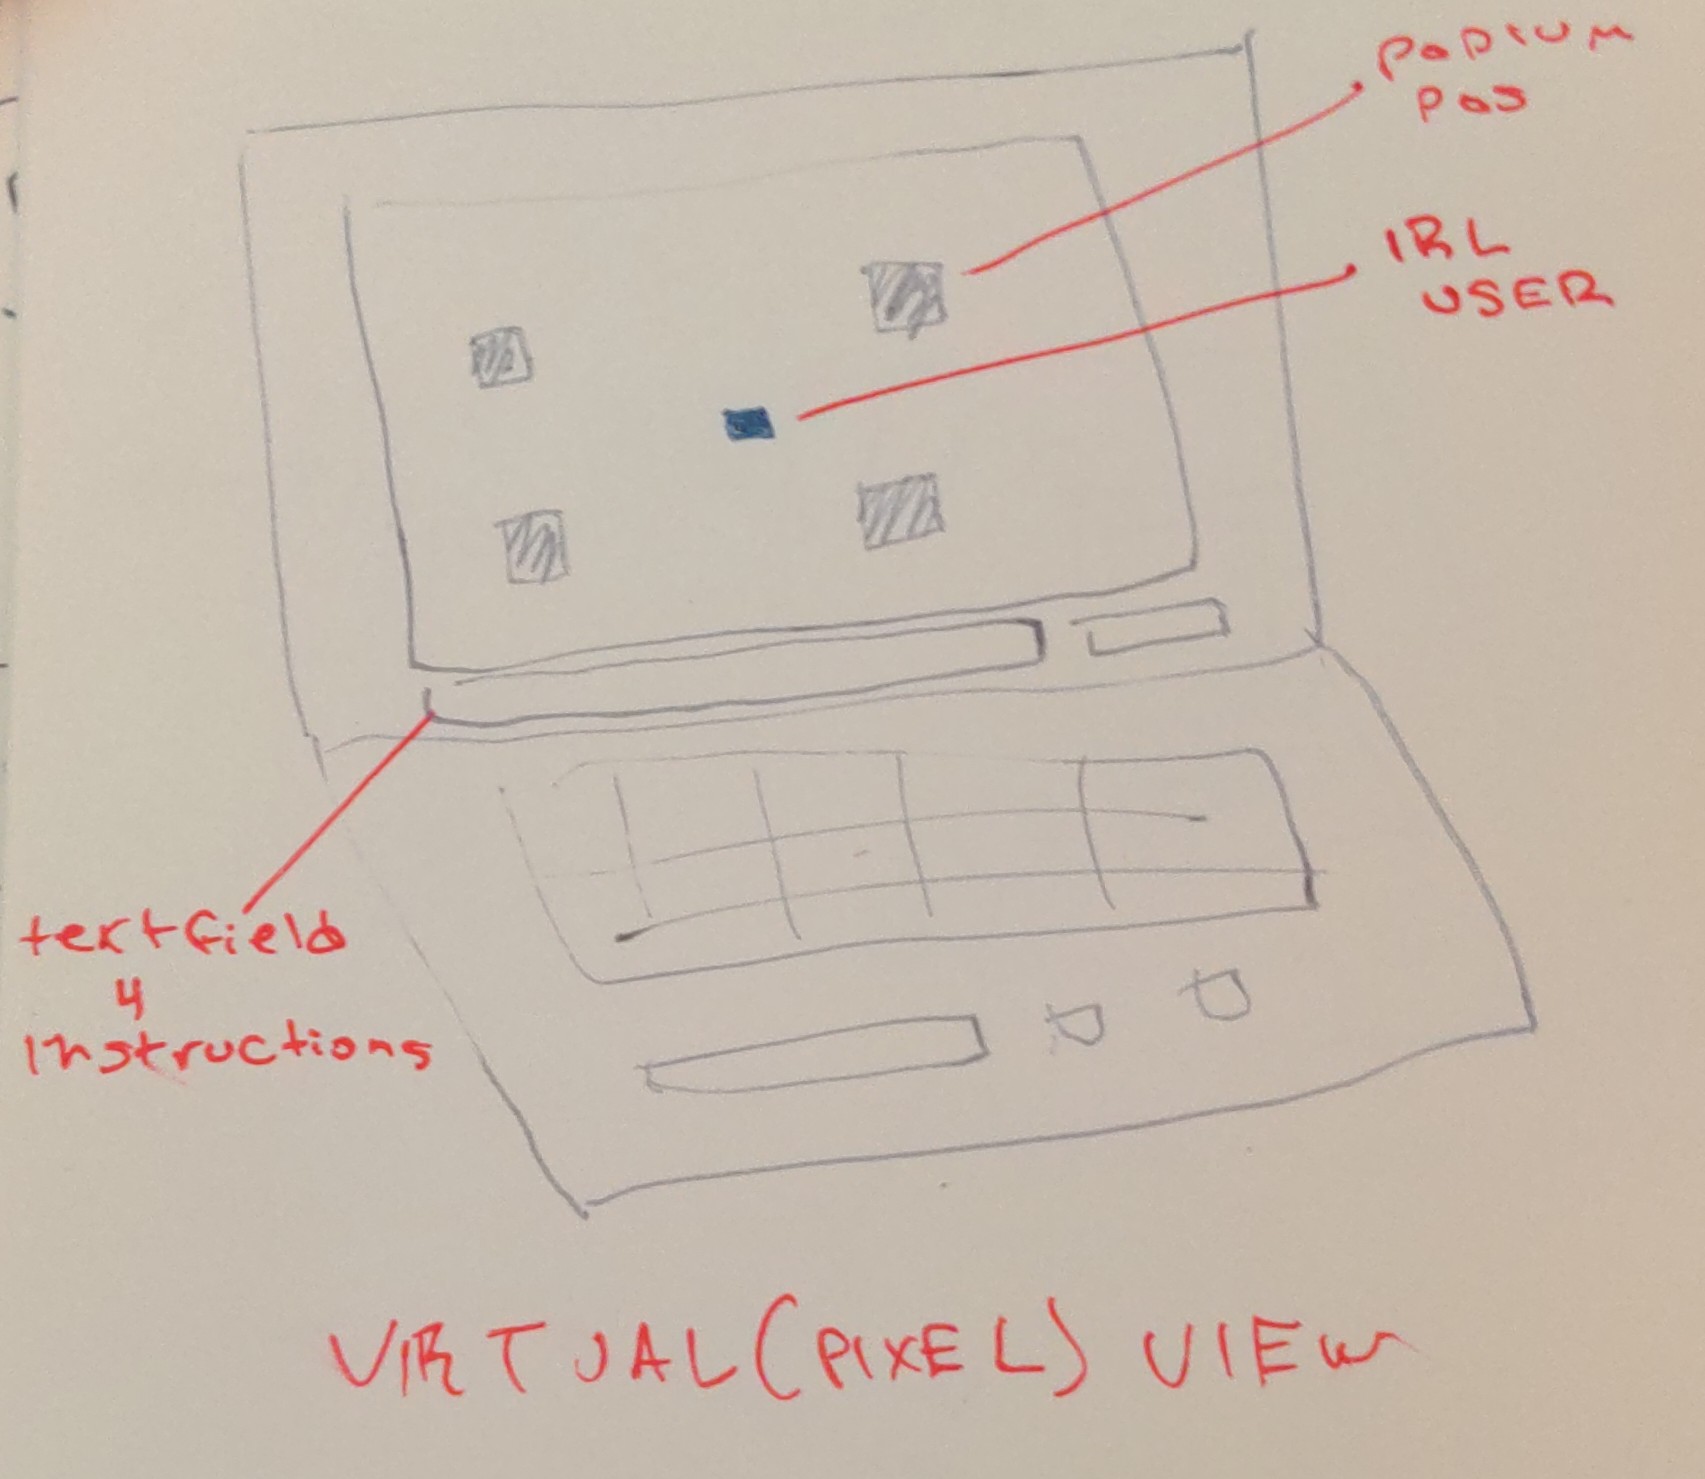 PODIUM
POS
IRL
USER
textfield
4
Instructions
VIRTUAL(PIXEL) VIEW